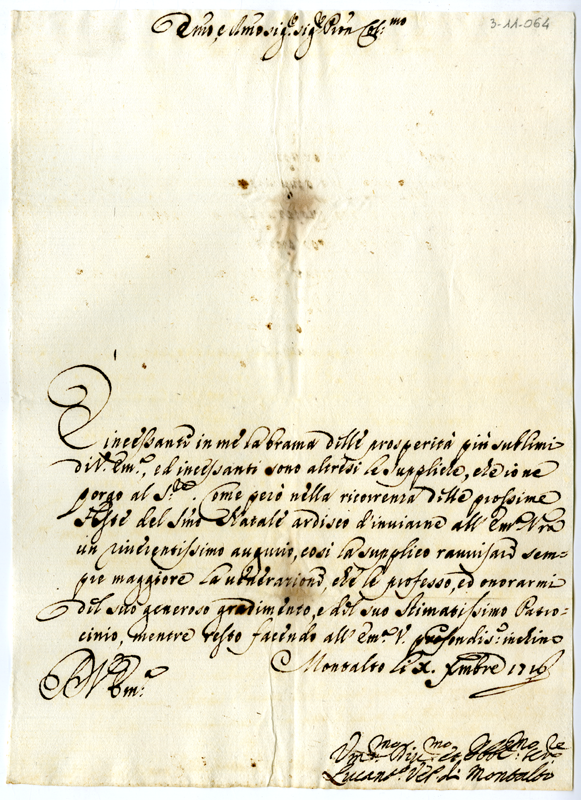 3-11-064
Emo, e Rmo Sig.r Sig.r Pron Col:mo
È incessante in me la brama delle prosperità più sublimi
di V. Em.a, ed incessanti sono altresì le suppliche, che io ne
porgo al S.re. Come però nella ricorrenza delle prossime
Feste del Smo Natale ardisco d'inviarne all' Em.a Vra
un riverentissimo augurio, così la supplico ravvisare sem=
pre maggiore la venerazione, che le professo, ed onorarmi
del suo generoso gradimento, e del suo stimatissimo Patro=
cinio, mentre resto facendo all' Em.a V. profondis.o inchino
Montalto li X. Xmbre
D. V. Em.a
Um.mo Div.mo ed Obb.mo Ser.re
Lucanto. Ves. di Montalto